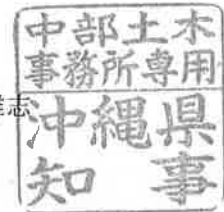 志
中部土木
事務所専用
沖縄県
知事